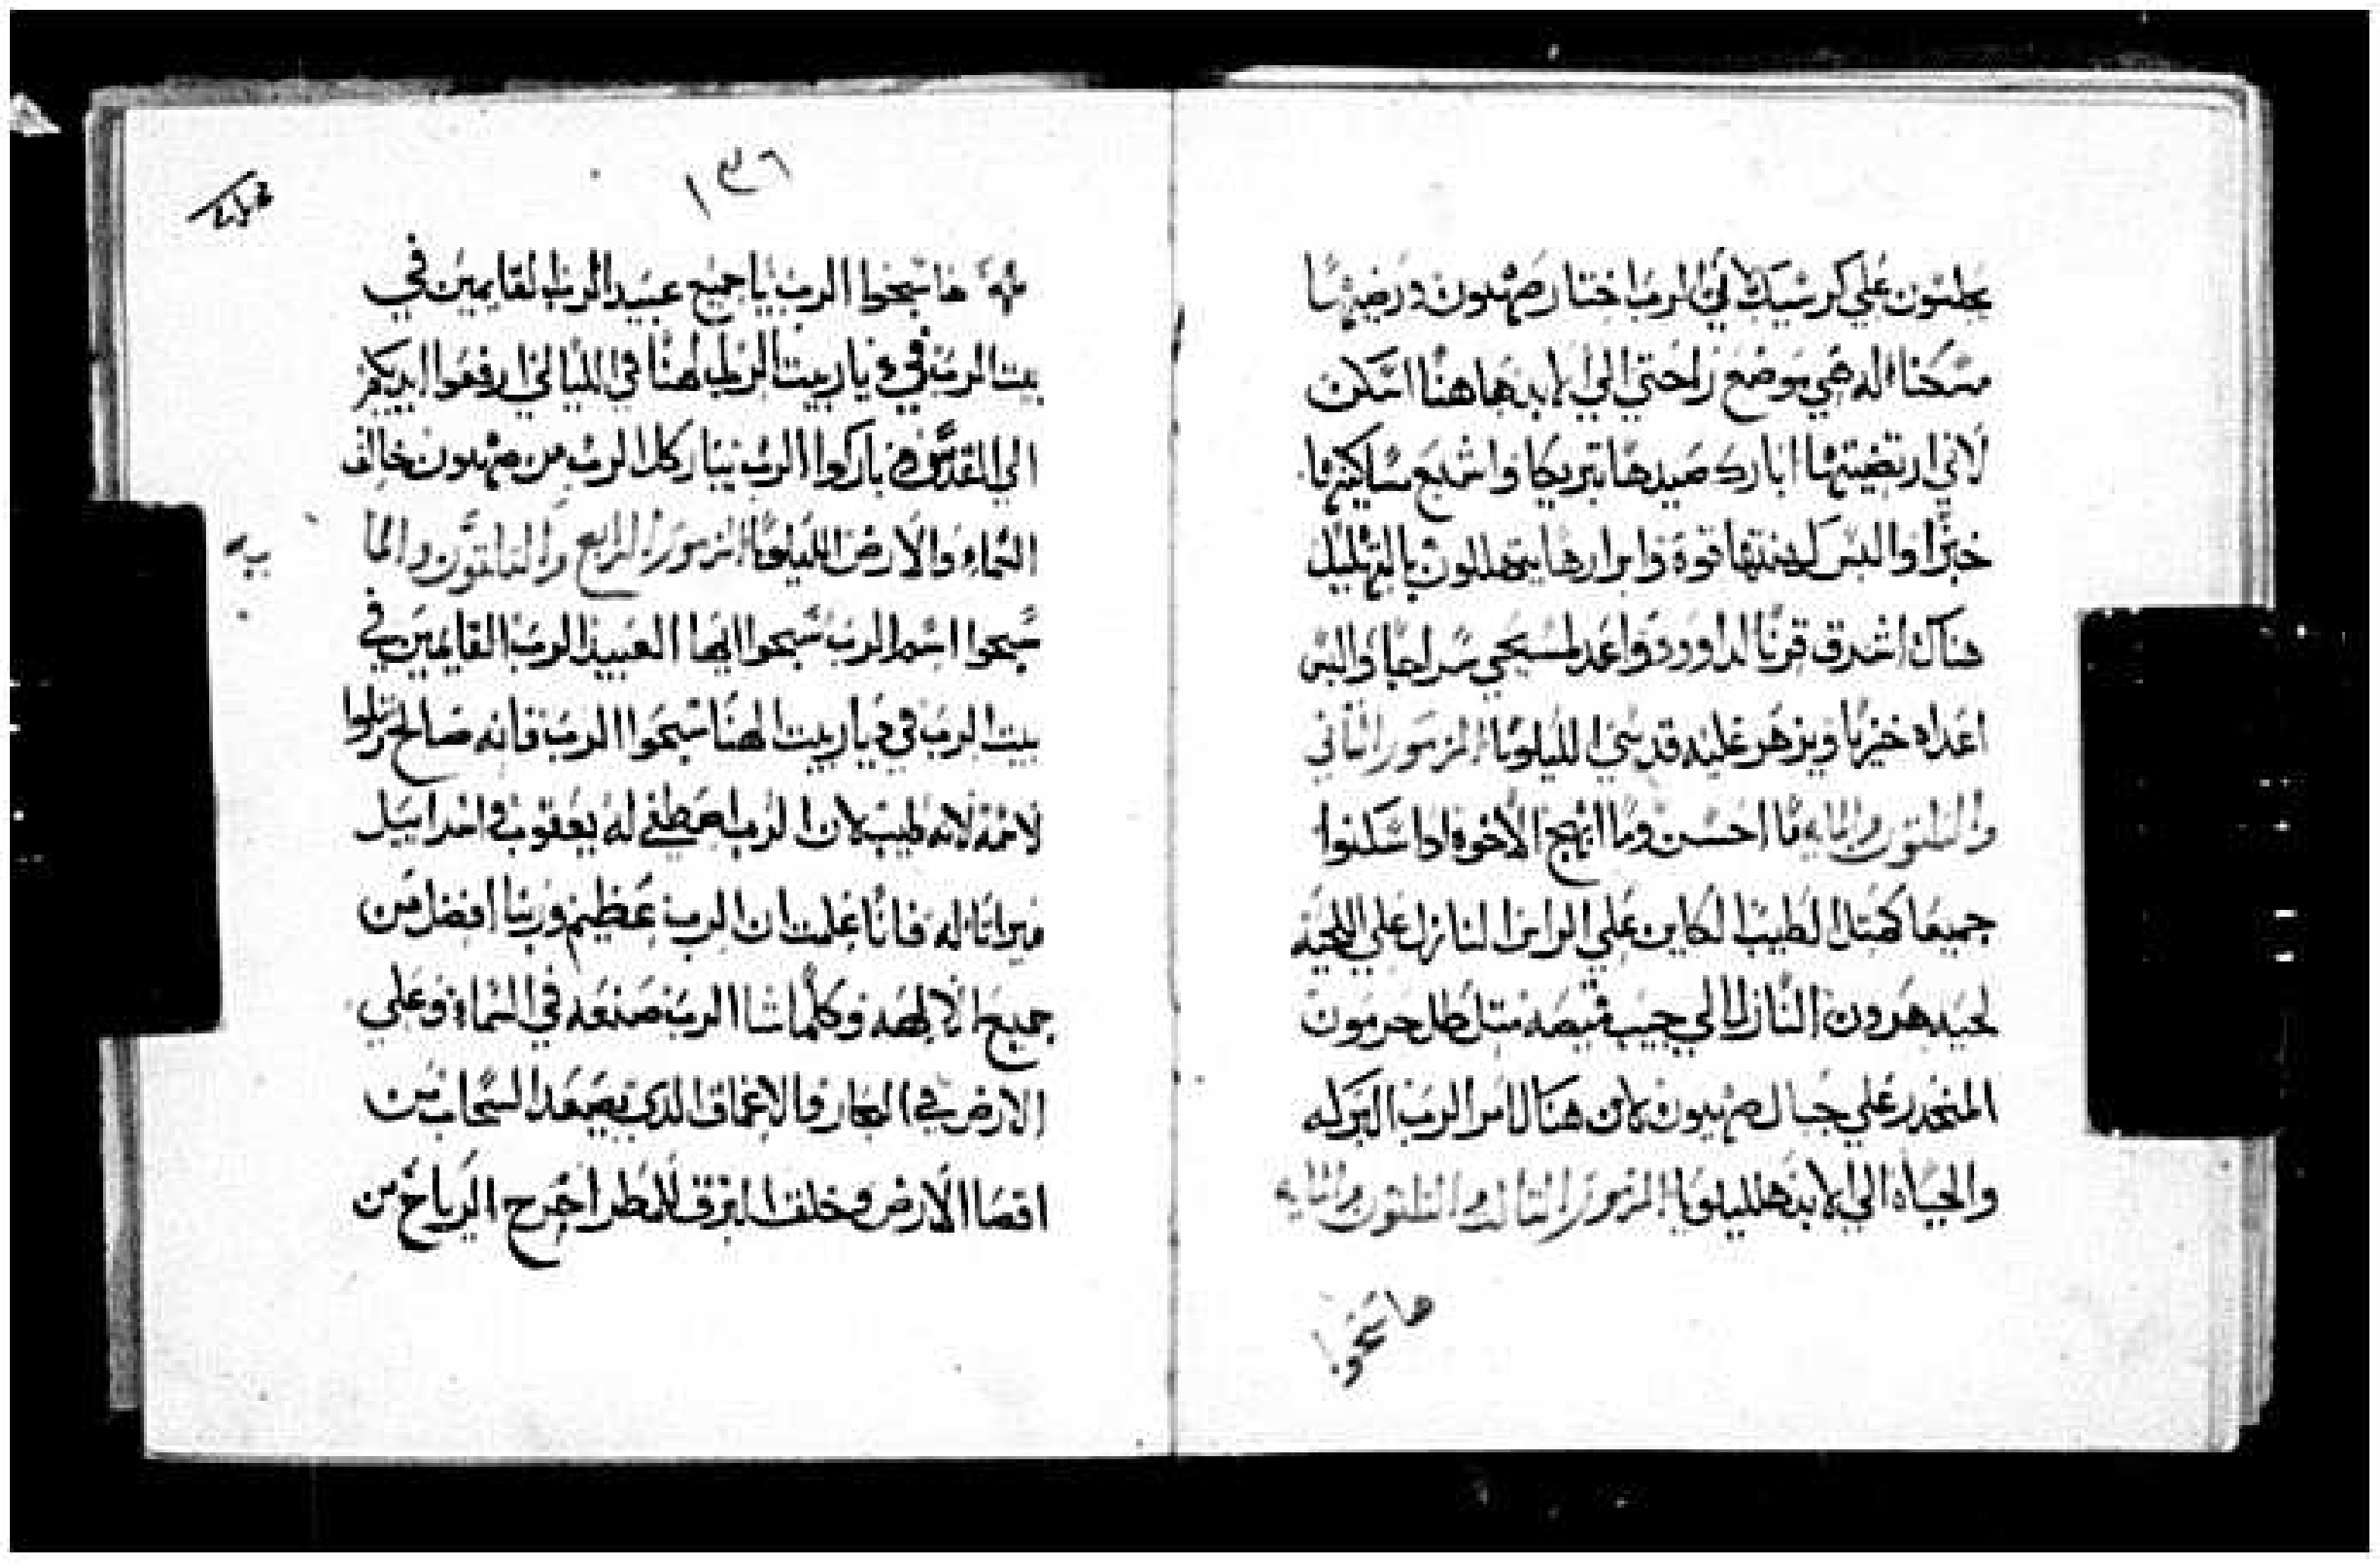 يجلسون علي كرسيك لان الرب اختار صهيون ورضيها
مسكنا له هي موضع راحتي الي الابد هاهنا اسكن
لاني ارتضيتها ابارك صيدها تبريكا واشبع مساكينها
خبزا والبس كهنتها قوة وابرارها يتهللون بالتهليل
هناك اشرق قرنا لداوود واعد لمسيحي سراجا والبس
اعداه خزيا ويزهر عليه قدسي الليلويا المزمور الثاني
والثلثون والمايه ما احسن وما ابهج الاخوة اذا سكنوا
جميعا كمثل الطيب الكاين علي الراس النازل علي اللحية
لحية هرون النازل الي جيب قميصه مثل طل حرمون
المنحدر علي جبال صهيون لان هناك امر الرب البركه
والحياة الي الابد هلليلويا المزمور الثالث والثلثون والمايه
ها سبحوا
١٣٦
ها سبحوا الرب يا جميع عبيد الرب القايمين في
بيت الرب في ديار بيت الرب الهنا في الليالي ارفعوا ايديكم
الي القدس باركوا الرب يباركك الرب من صهيون خالق
السماء والارض الليلويا المزمور الرابع والثلثون والما
يه
سبحوا اسم الرب سبحوا ايها العبيد الرب القايمين في
بيت الرب في ديار بيت الهنا سبحوا الرب فانه صالح رتلوا
لاسمه لانه طيب لان الرب اصطفي له يعقوب واسرابيل
ميراثا له فانا علمت ان الرب عظيم وربنا افضل من
جميع الالهه وكلما شا الرب صنعه في السماء وعلي
الارض في البحار والاعماق الذي يصعد السحاب من
اقصا الارض وخلق البرق للمطر اخرج الرياح من